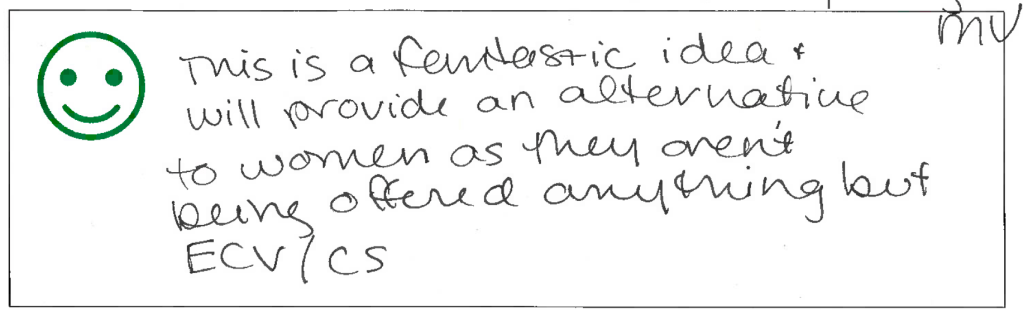 This is a fantastic idea +
will provide an alternative
to women as they aren't
being offered anything but
ECV/CS